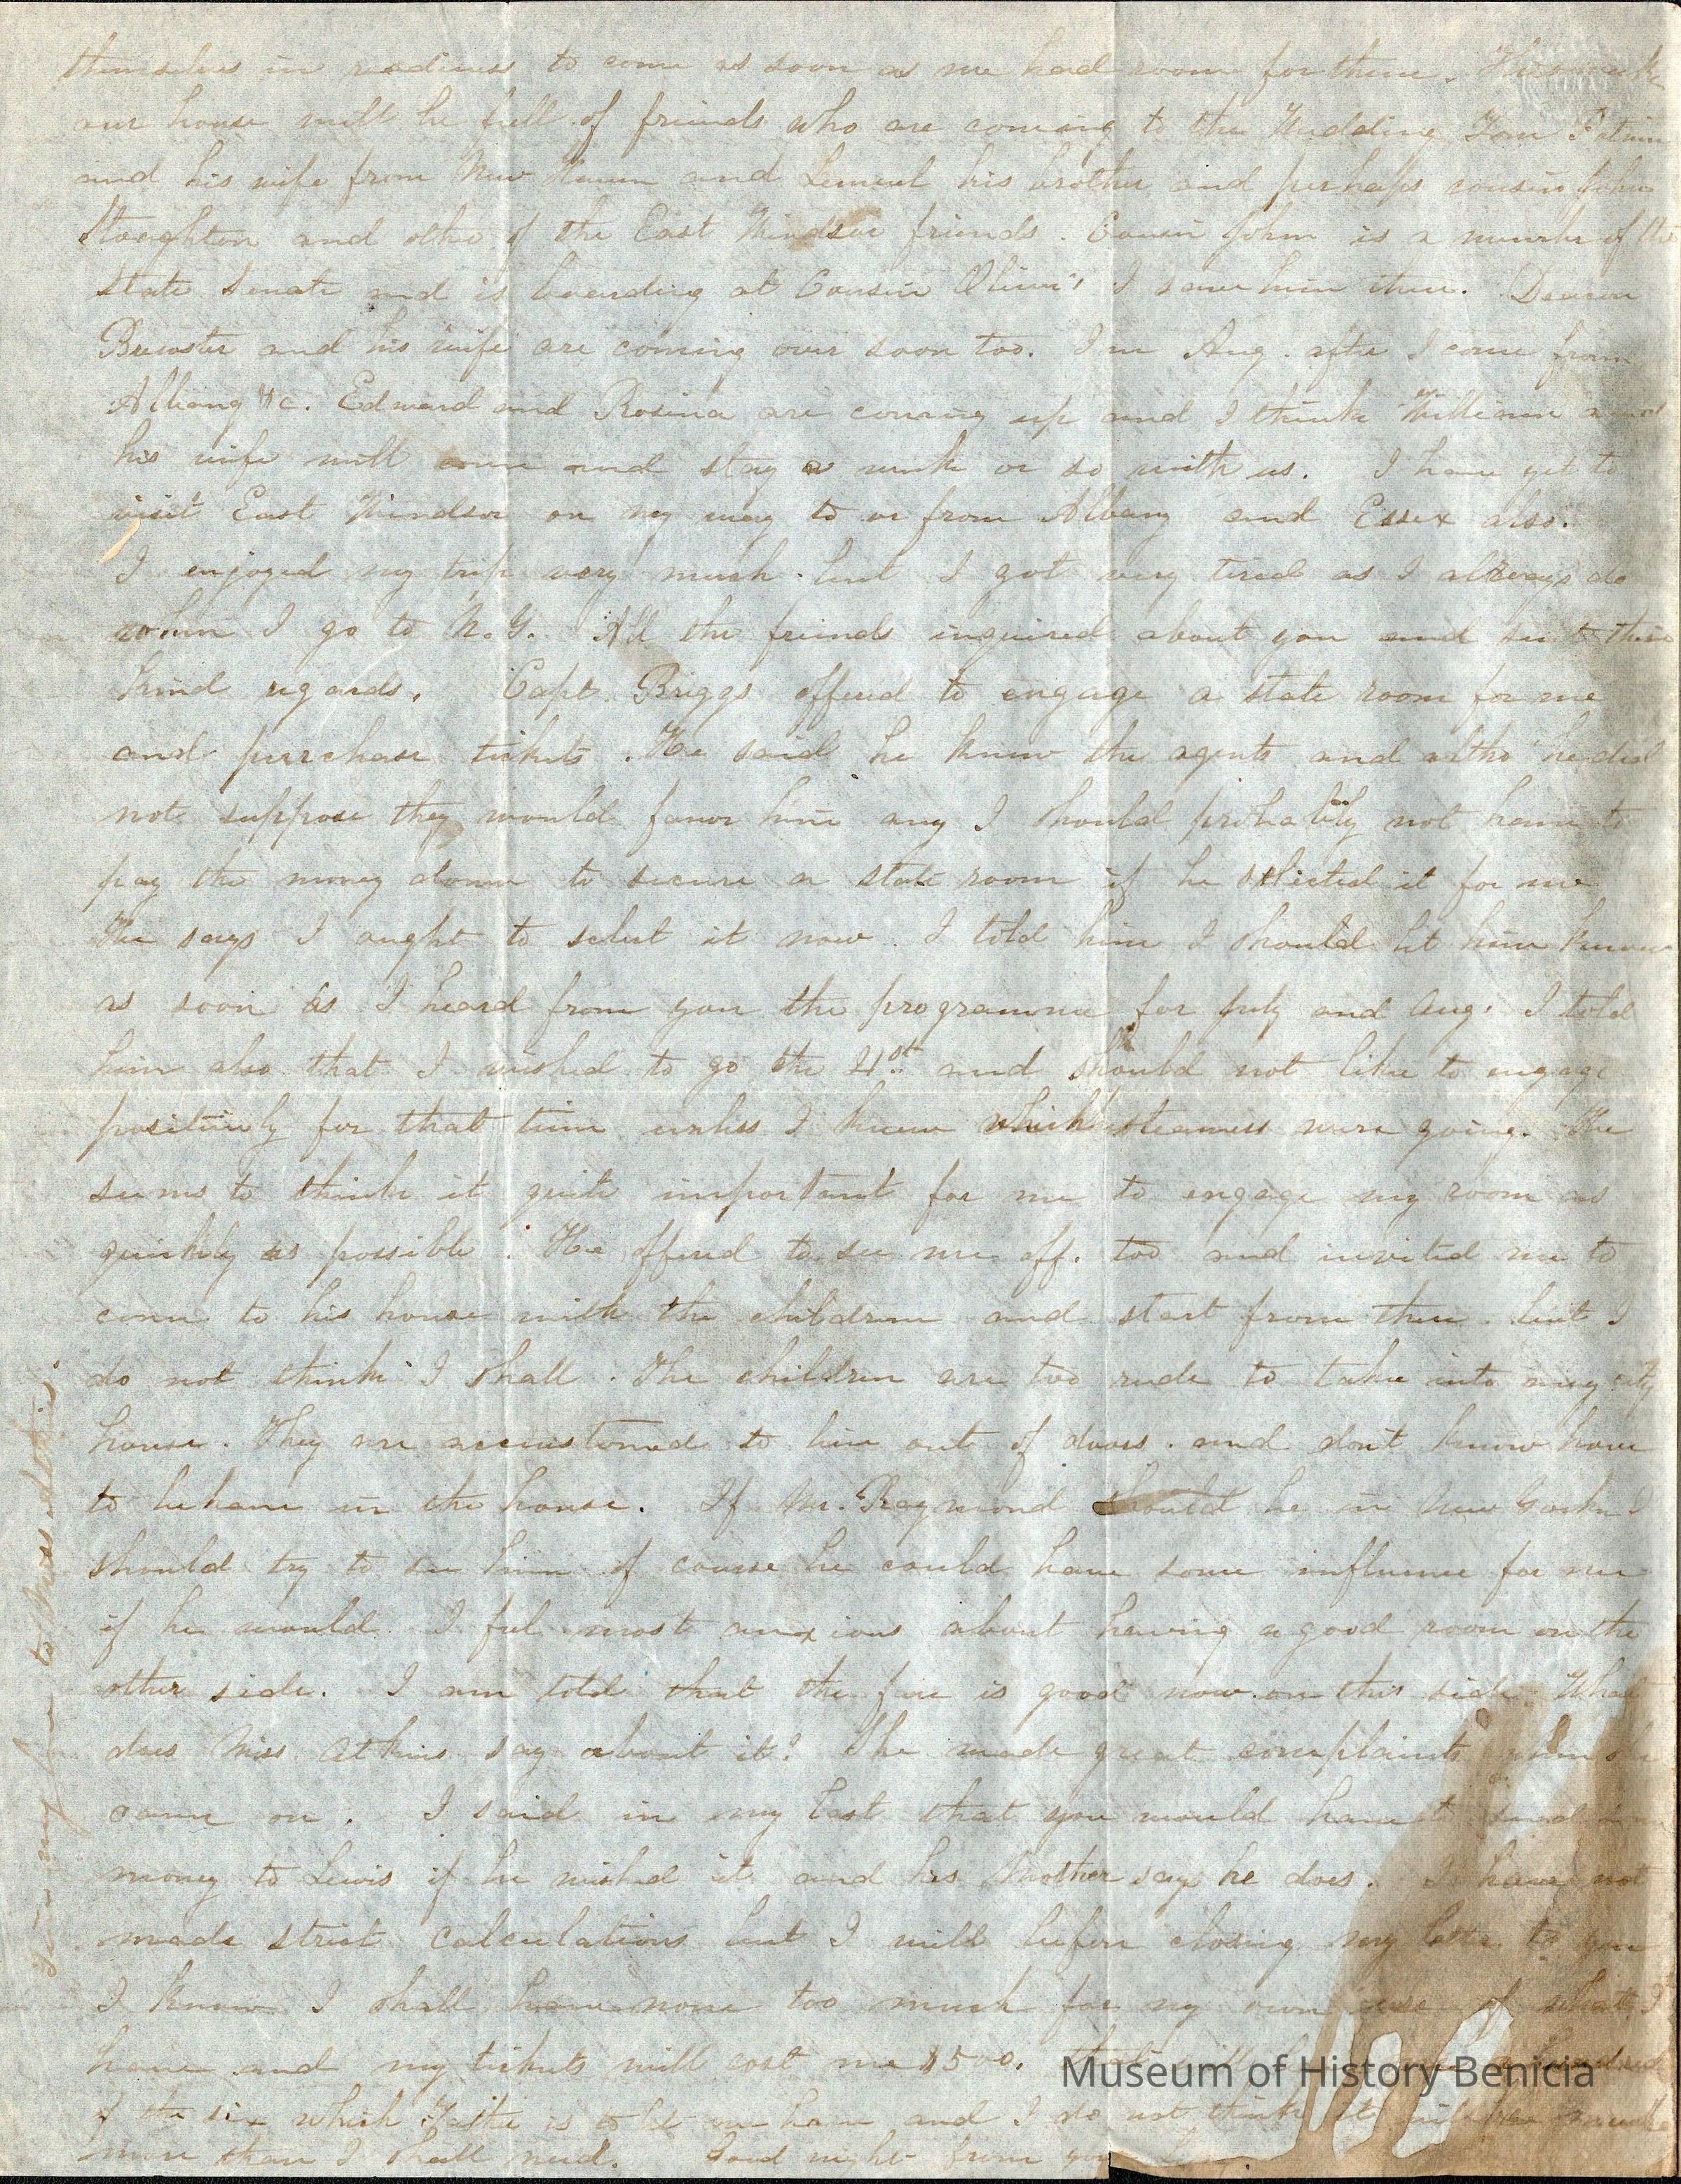 themselves in readiness to come as soon as we had room for them. This week
our house will be full of friends who are coming to the Wedding Tom
and his wife from New Haven and Lemuel his brother and perhaps cousin John
Stoughton and othe of the East Windsor friends. Cousin John is a member of the
State Senate and is boarding at Cousin Oliver's I saw him there. Deacon
Brewster and his wife are coming over soon too. In Aug. after I come from
Albany &c. Edward and Rosina are coming up and I think William and
his wife will come and stay a week or so with us. I have yet to
visit East Windsor on my way to or from Albany and Essex also.
I enjoyed my trip very much but I got very tired as I always do
when I go to N.Y. All the friends inquired about you and sent their
kind regards. Capt. Briggs offered to engage a state room for me
and purchase tickets. He said he knew the agents and altho' he did
not suppose they would favor him any I should probably not have to
pay the money down to secure a state room if he selected it for me
He says I ought to select it now. I told him I should let him know
as soon as I heard from you the programme for July and Aug. I told
him also that I wished to go the 21st and should not like to engage
positively for that time unless I knew which steamers were going. He
seems to think it quite important for me to engage my room as
quickly as possible. He offered to see me off. too and invited me to
come to his house with the children and start from there. but I
do not think I shall. The children are too rude to take into any city
house. They are accustomed to live out of doors. and don't know how
to behave in the house. If Mr. Raymond should be in New York I
should try to see him of course he could have some influence for me
if he would. I feel most anxious about having a good room on the
other side. I am told that the fare is good now on this side. What
does Miss Atkins say about it? She made great complaints when she
came on. I said in my last that you would have to send
money to Lewis if he wished it and his Mother says he does. I have not
made strict calculations but I will before closing my letter to you
I know I shall have none too much for my own use of what I
have and my tickets will cost me $500.
of the six which Father is to let me have and I do not think it will be
more than I shall need. Good night from your
Give my love to Miss Atkins.
Museum of History Benicia